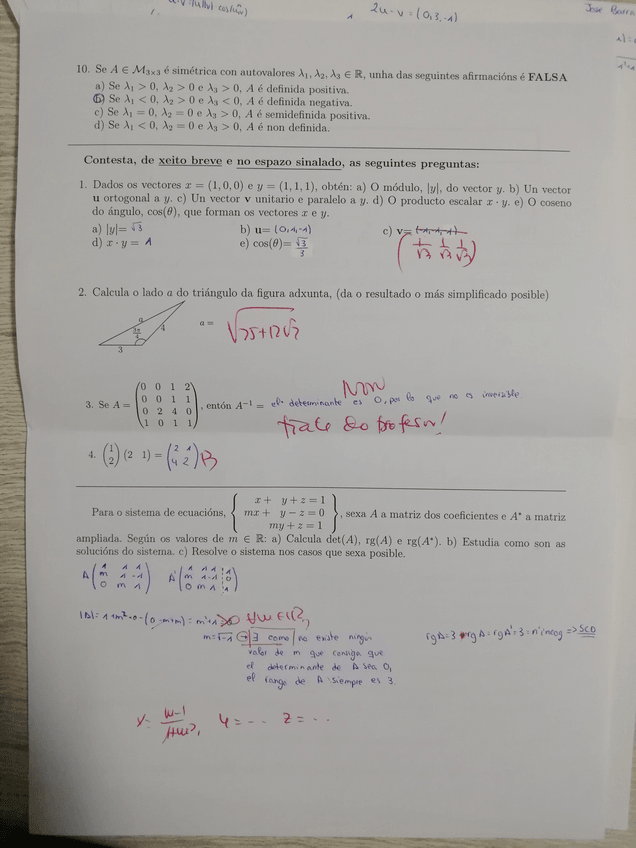 2u-v=(0,3,-1)
10. Se A ∈ M₃ₓ₃ é simétrica con autovalores λ₁, λ₂, λ₃ ∈ ℝ, unha das seguintes afirmacións é FALSA
a) Se λ₁ > 0, λ₂ > 0 e λ₃ > 0, A é definida positiva.
b) Se λ₁ < 0, λ₂ > 0 e λ₃ < 0, A é definida negativa.
c) Se λ₁ = 0, λ₂ = 0 e λ₃ > 0, A é semidefinida positiva.
d) Se λ₁ < 0, λ₂ = 0 e λ₃ > 0, A é non definida.
Contesta, de xeito breve e no espazo sinalado, as seguintes preguntas:
1. Dados os vectores x = (1,0,0) e y = (1,1,1), obtén: a) O módulo, |y|, do vector y. b) Un vector
u ortogonal a y. c) Un vector v unitario e paralelo a y. d) O producto escalar x · y. e) O coseno
do ángulo, cos(θ), que forman os vectores x e y.
a) |y|= √3 b) u= (0,1,-1) c) v= (-1,-1,-1)
d) x · y = 1 e) cos(θ)= √3/3 (1/√3 1/√3 1/√3)
2. Calcula o lado a do triángulo da figura adxunta, (da o resultado o máis simplificado posible)
a 3π/4 4 3 a = √25+12√2
Non
3. Se A = (0 0 1 2
0 0 1 1
0 2 4 0
1 0 1 1), entón A⁻¹ = el determinante es 0, por lo que no es inversible
4. (1
2) (2 1) = (2 1
4 2) B
Para o sistema de ecuacións, { x + y + z = 1
mx + y − z = 0
my + z = 1 }, sexa A a matriz dos coeficientes e A* a matriz
ampliada. Según os valores de m ∈ ℝ: a) Calcula det(A), rg(A) e rg(A*). b) Estudia como son as
solucións do sistema. c) Resolve o sistema nos casos que sexa posible.
A (1 1 1
m 1 -1
0 m 1) A* (1 1 1 1
m 1 -1 0
0 m 1 1)
|A| = 1+m²+0-(0-m+m) = m²+1 = 0 ∀m∈ℝ,
m=√-1 → ∃ como no existe ningún
valor de m que consiga que
el determinante de A sea 0,
el rango de A siempre es 3.
rgA=3 rgA=rgA*=3=nºincog => SCD
x= m-1/1+m², y=-- z=--